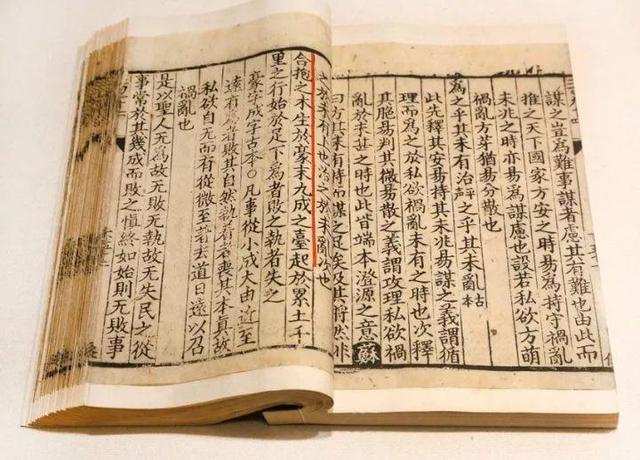 謀之豈為難事謀者慮其有難也由此而
推之天下國家方安之時易為持守禍亂
未兆之時亦易為謀慮也設若私欲方萌
禍亂方芽猶易分散也
為之乎其未有治之乎其未亂
此先釋其安易持其未兆易謀之義謂循
理而為之於私欲禍亂未有之時也次釋
其脆易判其微易散之義謂攻理私欲禍
亂於未甚之時也此皆端本澄源之意
蘇
曰方其未有持而謀之足矣及其將然非
合抱之木生於豪末九成之臺起於累土千
里之行始於足下為者敗之執者失之
豪字成字古本○凡事從小成大由近至
遠有為者敗其自然執有者喪其本真故
私欲自无而有從微至著去道日遠以召
禍亂也
是以聖人无為故无敗无執故无失民之從
事常於其幾成而敗之慎終如始則无敗事